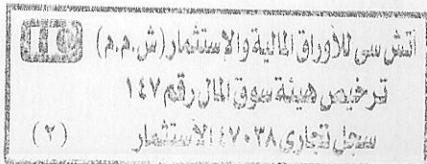 اتش سى للأوراق المالية والاستثمار (ش.م.م)
ترخيص هيئة سوق المال رقم ١٤٧
سجل تجارى ٤٧٠٣٨ الاستثمار (٢)